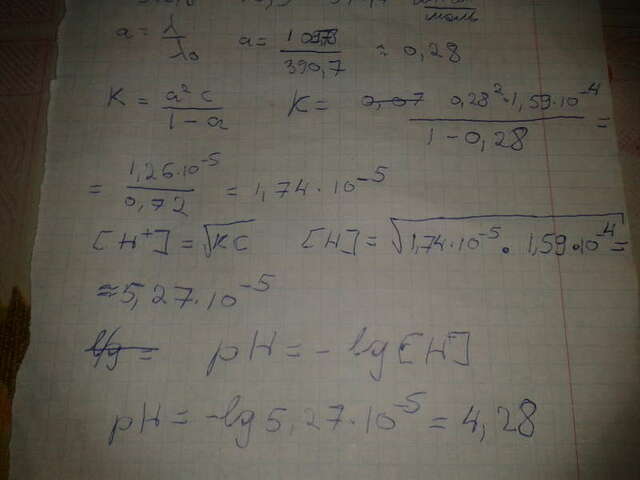 a = λ/λ₀ a = /390,7 ≈ 0,28
K = a²c/1-a K = 0,07 0,28²·1,59·10⁻⁴/1-0,28 =
= 1,26·10⁻⁵/0,72 = 1,74·10⁻⁵
[H⁺] = √KC [H] = √1,74·10⁻⁵·1,59·10⁻⁴ =
≈ 5,27·10⁻⁵
pH = -lg[H]
pH = -lg 5,27·10⁻⁵ = 4,28